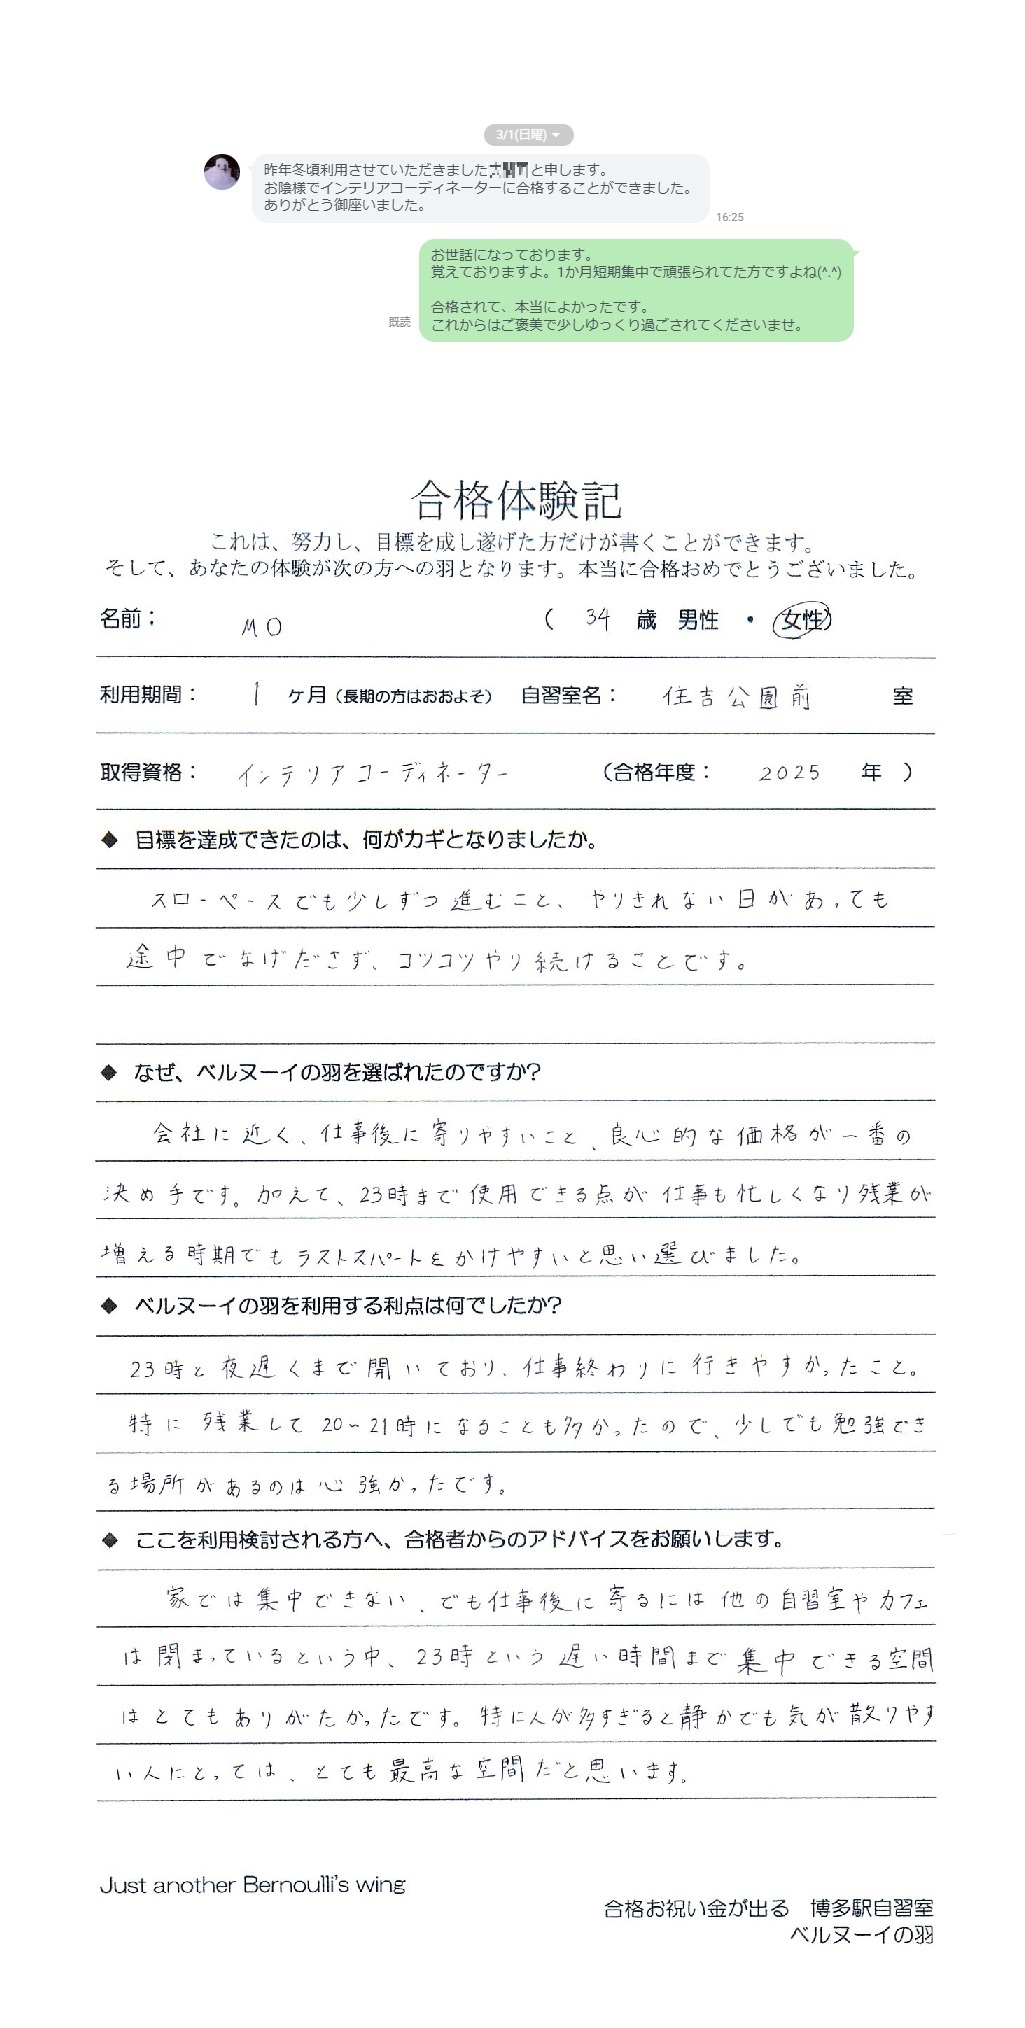 3/1(日曜)
昨年冬頃利用させていただきました と申します。
お陰様でインテリアコーディネーターに合格することができました。
ありがとう御座いました。
16:25
お世話になっております。
覚えておりますよ。1か月短期集中で頑張られてた方ですよね(^.^)
合格されて、本当によかったです。
これからはご褒美で少しゆっくり過ごされてくださいませ。
既読
合格体験記
これは、努力し、目標を成し遂げた方だけが書くことができます。
そして、あなたの体験が次の方への羽となります。本当に合格おめでとうございました。
名前： MO （ 34 歳 男性 ・ 女性）
利用期間： 1 ケ月（長期の方はおおよそ） 自習室名： 住吉公園前 室
取得資格： インテリアコーディネーター （合格年度： 2025 年 ）
◆ 目標を達成できたのは、何がカギとなりましたか。
スローペースでも少しずつ進むこと、やりきれない日があっても
途中でなげださず、コツコツやり続けることです。
◆ なぜ、ベルヌーイの羽を選ばれたのですか?
会社に近く、仕事後に寄りやすいこと、良心的な価格が一番の
決め手です。加えて、23時まで使用できる点が仕事も忙しくなり残業が
増える時期でもラストスパートをかけやすいと思い選びました。
◆ ベルヌーイの羽を利用する利点は何でしたか?
23時と夜遅くまで開いており、仕事終わりに行きやすかったこと。
特に残業して20~21時になることも多かったので、少しでも勉強でき
る場所があるのは心強かったです。
◆ ここを利用検討される方へ、合格者からのアドバイスをお願いします。
家では集中できない、でも仕事後に寄るには他の自習室やカフェ
は閉まっているという中、23時という遅い時間まで集中できる空間
はとてもありがたかったです。特に人が多すぎると静かでも気が散りやす
い人にとっては、とても最高な空間だと思います。
Just another Bernoulli's wing
合格お祝い金が出る 博多駅自習室
ベルヌーイの羽